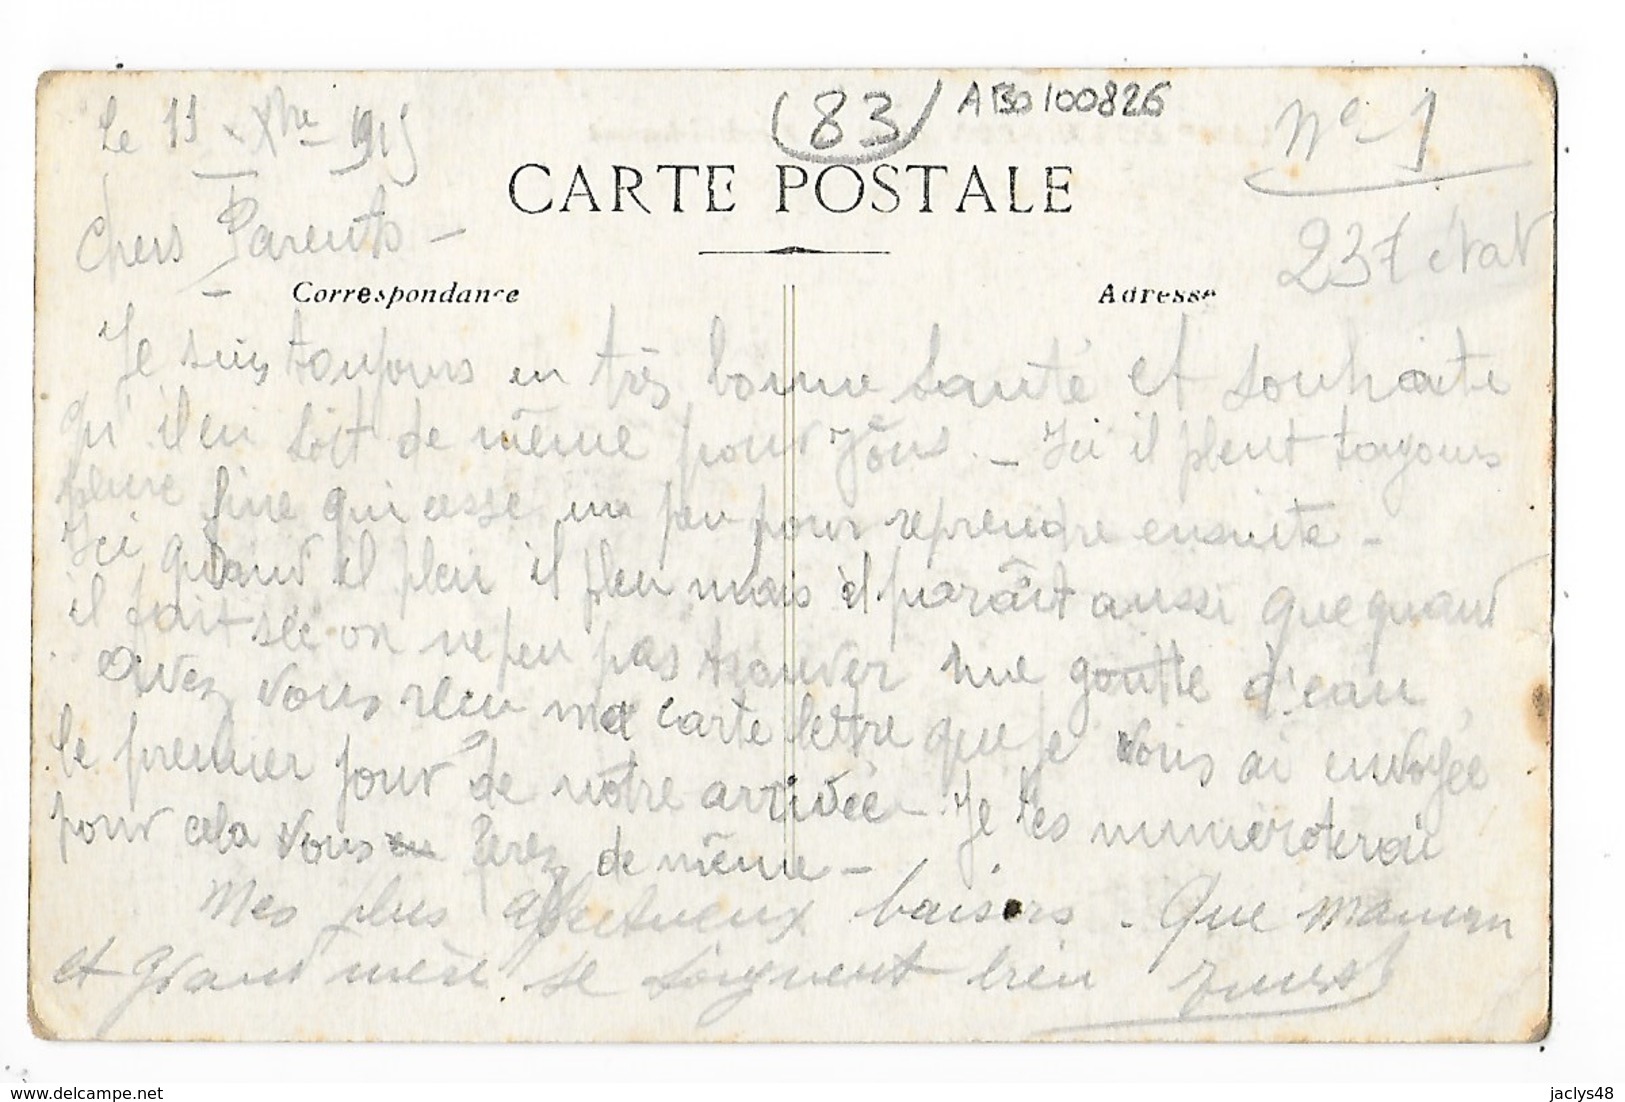 Le 11 - Xbre 1915
(83)
AB0100826
N° 1
CARTE POSTALE
Chers Parents -
237
Correspondance
Adresse
Je suis toujours en très bonne santé et souhaite
qu'il en soit de même pour vous. - Ici il pleut toujours
pluie fine qui cesse un peu pour reprendre ensuite -
Ici quand il pleu il pleu mais il paraît aussi que quand
il fait sec on ne peu pas trouver une goutte d'eau
Avez vous reçu ma carte lettre que je vous ai envoyée
le premier jour de notre arrivée - Je les numéroterai
pour cela vous ferez de même -
Mes plus affectueux baisers. Que maman
et grand mère se soignent bien
www.delcampe.net
jaclys48